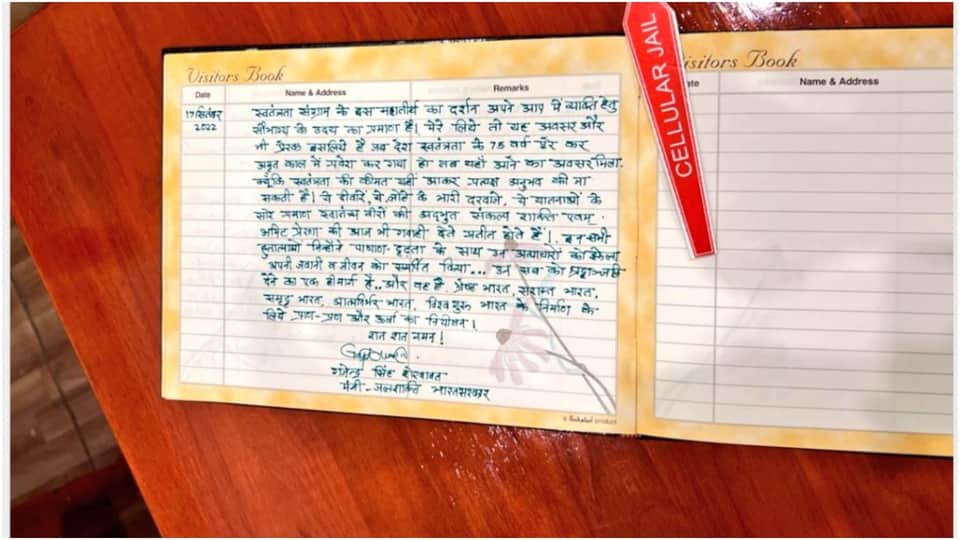 Visitors Book
Date
Name & Address
Remarks
17 सितंबर
2022
स्वतंत्रता संग्राम के इस महातीर्थ का दर्शन अपने आप में व्यक्ति हेतु
सौभाग्य के उदय का प्रमाण है। मेरे लिये तो यह अवसर और
भी प्रेरक इसलिये है जब देश स्वतंत्रता के 75 वर्ष पूरे कर
अमृत काल में प्रवेश कर गया हो तब यहाँ आने का अवसर मिला.
क्यूंकि स्वतंत्रता की कीमत यहीं आकर प्रत्यक्ष अनुभव की जा
सकती है। ये दीवारें, ये लोहे के भारी दरवाजे, ये यातनाओं के
सारे प्रमाण स्वातंत्र्य वीरों की अदभुत संकल्प शक्ति एवम्
अमिट प्रेरणा की आज भी गवाही देते प्रतीत होते हैं।. उन सभी
हुतात्माओं जिन्होंने पाषाण दृढ़ता के साथ उन अत्याचारों को झेला
अपनी जवानी व जीवन को समर्पित किया... उन सब को श्रद्धाञ्जली
देने का एक ही मार्ग है.. और वह है श्रेष्ठ भारत, सशक्त भारत,
समृद्ध भारत, आत्मनिर्भर भारत, विश्वगुरू भारत के निर्माण के
लिये प्राण-प्रण और ऊर्जा का नियोजन।
शत शत नमन!
गजेन्द्र सिंह शेखावत
मंत्री - जलशक्ति भारत सरकार
product
CELLULAR JAIL
isitors Book
ate
Name & Address